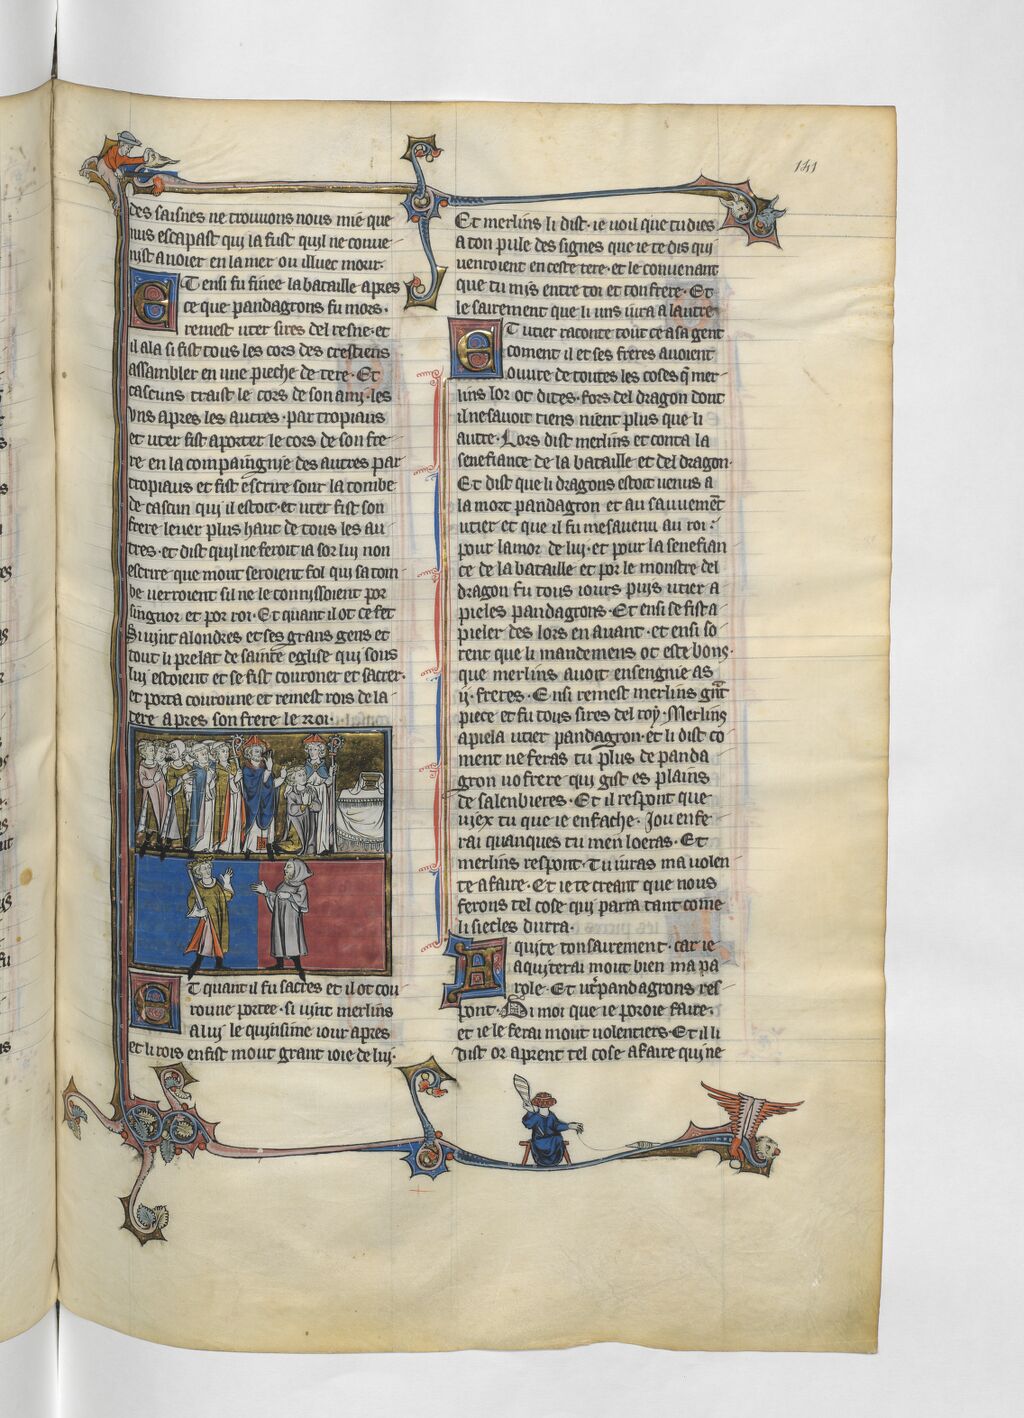 141
des saisnes ne trouuons nous mie que
nus escapast qui ia fust quil ne conue
nist a noier en la mer ou illuec morir.
ET ensi fu finee la bataille apres
ce que pandragrons fu mors.
remest uter sires del resne. et
il ala si fist tous les cors des crestiens
assambler en une pieche de tere. Et
cascuns traist le cors de son ami. les
vns apres les autres. par tropiaus
et uter fist aporter le cors de son fre
re en la compaingnie des autres par
tropiaus et fist escrire sour la tombe
de cascun qui il estoit. et uter fist son
frere leuer plus haut de tous les au
tres. et dist quil ne feroit ia sor lui non
escrire que mout seroient fol qui sa tom
be uerroient sil ne le connissoient por
singnor et por roi. Et quant il ot ce fet
Si uint a londres et ses grans gens et
tout li prelat de sainte eglise qui sous
lui estoient et se fist couroner et sacrer.
et porta couronne et remest rois de la
tere apres son frere le Roi.
ET quant il fu sacres et il ot cou
roune portee. si uint merlins
a lui le quinsime iour apres
et li rois en fist mout grant ioie de lui.
Et merlins li dist. ie uoil que tu dies
a ton pule des signes que ie te dis qui
uenroient en ceste tere. et le conuenant
que tu mis entre toi et ton frere. Et
le sairement que li uns iura a lautre
ET utier raconte tout ce a sa gent
coment il et ses freres auoient
ouure de toutes les coses q̄ mer
lins lor ot dites. fors del dragon dont
il ne sauoit riens nient plus que li
autre. Lors dist merlins et conta la
senefiance de la bataille et del dragon.
Et dist que li dragons estoit uenus a
la mort pandagron et au sauuemēt
utier et que il fu mesauenu au roi.
pour lamor de lui. et pour la senefian
ce de la bataille et por le monstre del
dragon fu tous iours puis utier a
pieles pandagrons. Et ensi se fist a
pieler des lors en auant. et ensi so
rent que li mandemens ot este bons.
que merlins auoit ensengnie as
.ij. freres. Ensi remest merlins gn̄t
piece et fu tous sires del roy. Merlins
apiela utier pandagron. et li dist co
ment ne feras tu plus de panda
gron uo frere qui gist es plains
de salenbieres. Et il respont que
uiex tu que ie en fache. Jou en fe
rai quanques tu men loeras. Et
merlins respont. Tu iuras ma uolen
te a faire. Et ie te creant que nous
ferons tel cose qui parra tant come
li siecles durra.
Aquite ton sairement. car ie
aquiterai mout bien ma pa
role. Et ut̄ pandagrons res
pont. Di moi que ie poroie faire.
et ie le ferai mout uolentiers. Et il li
dist or aprent tel cose a faire qui ne